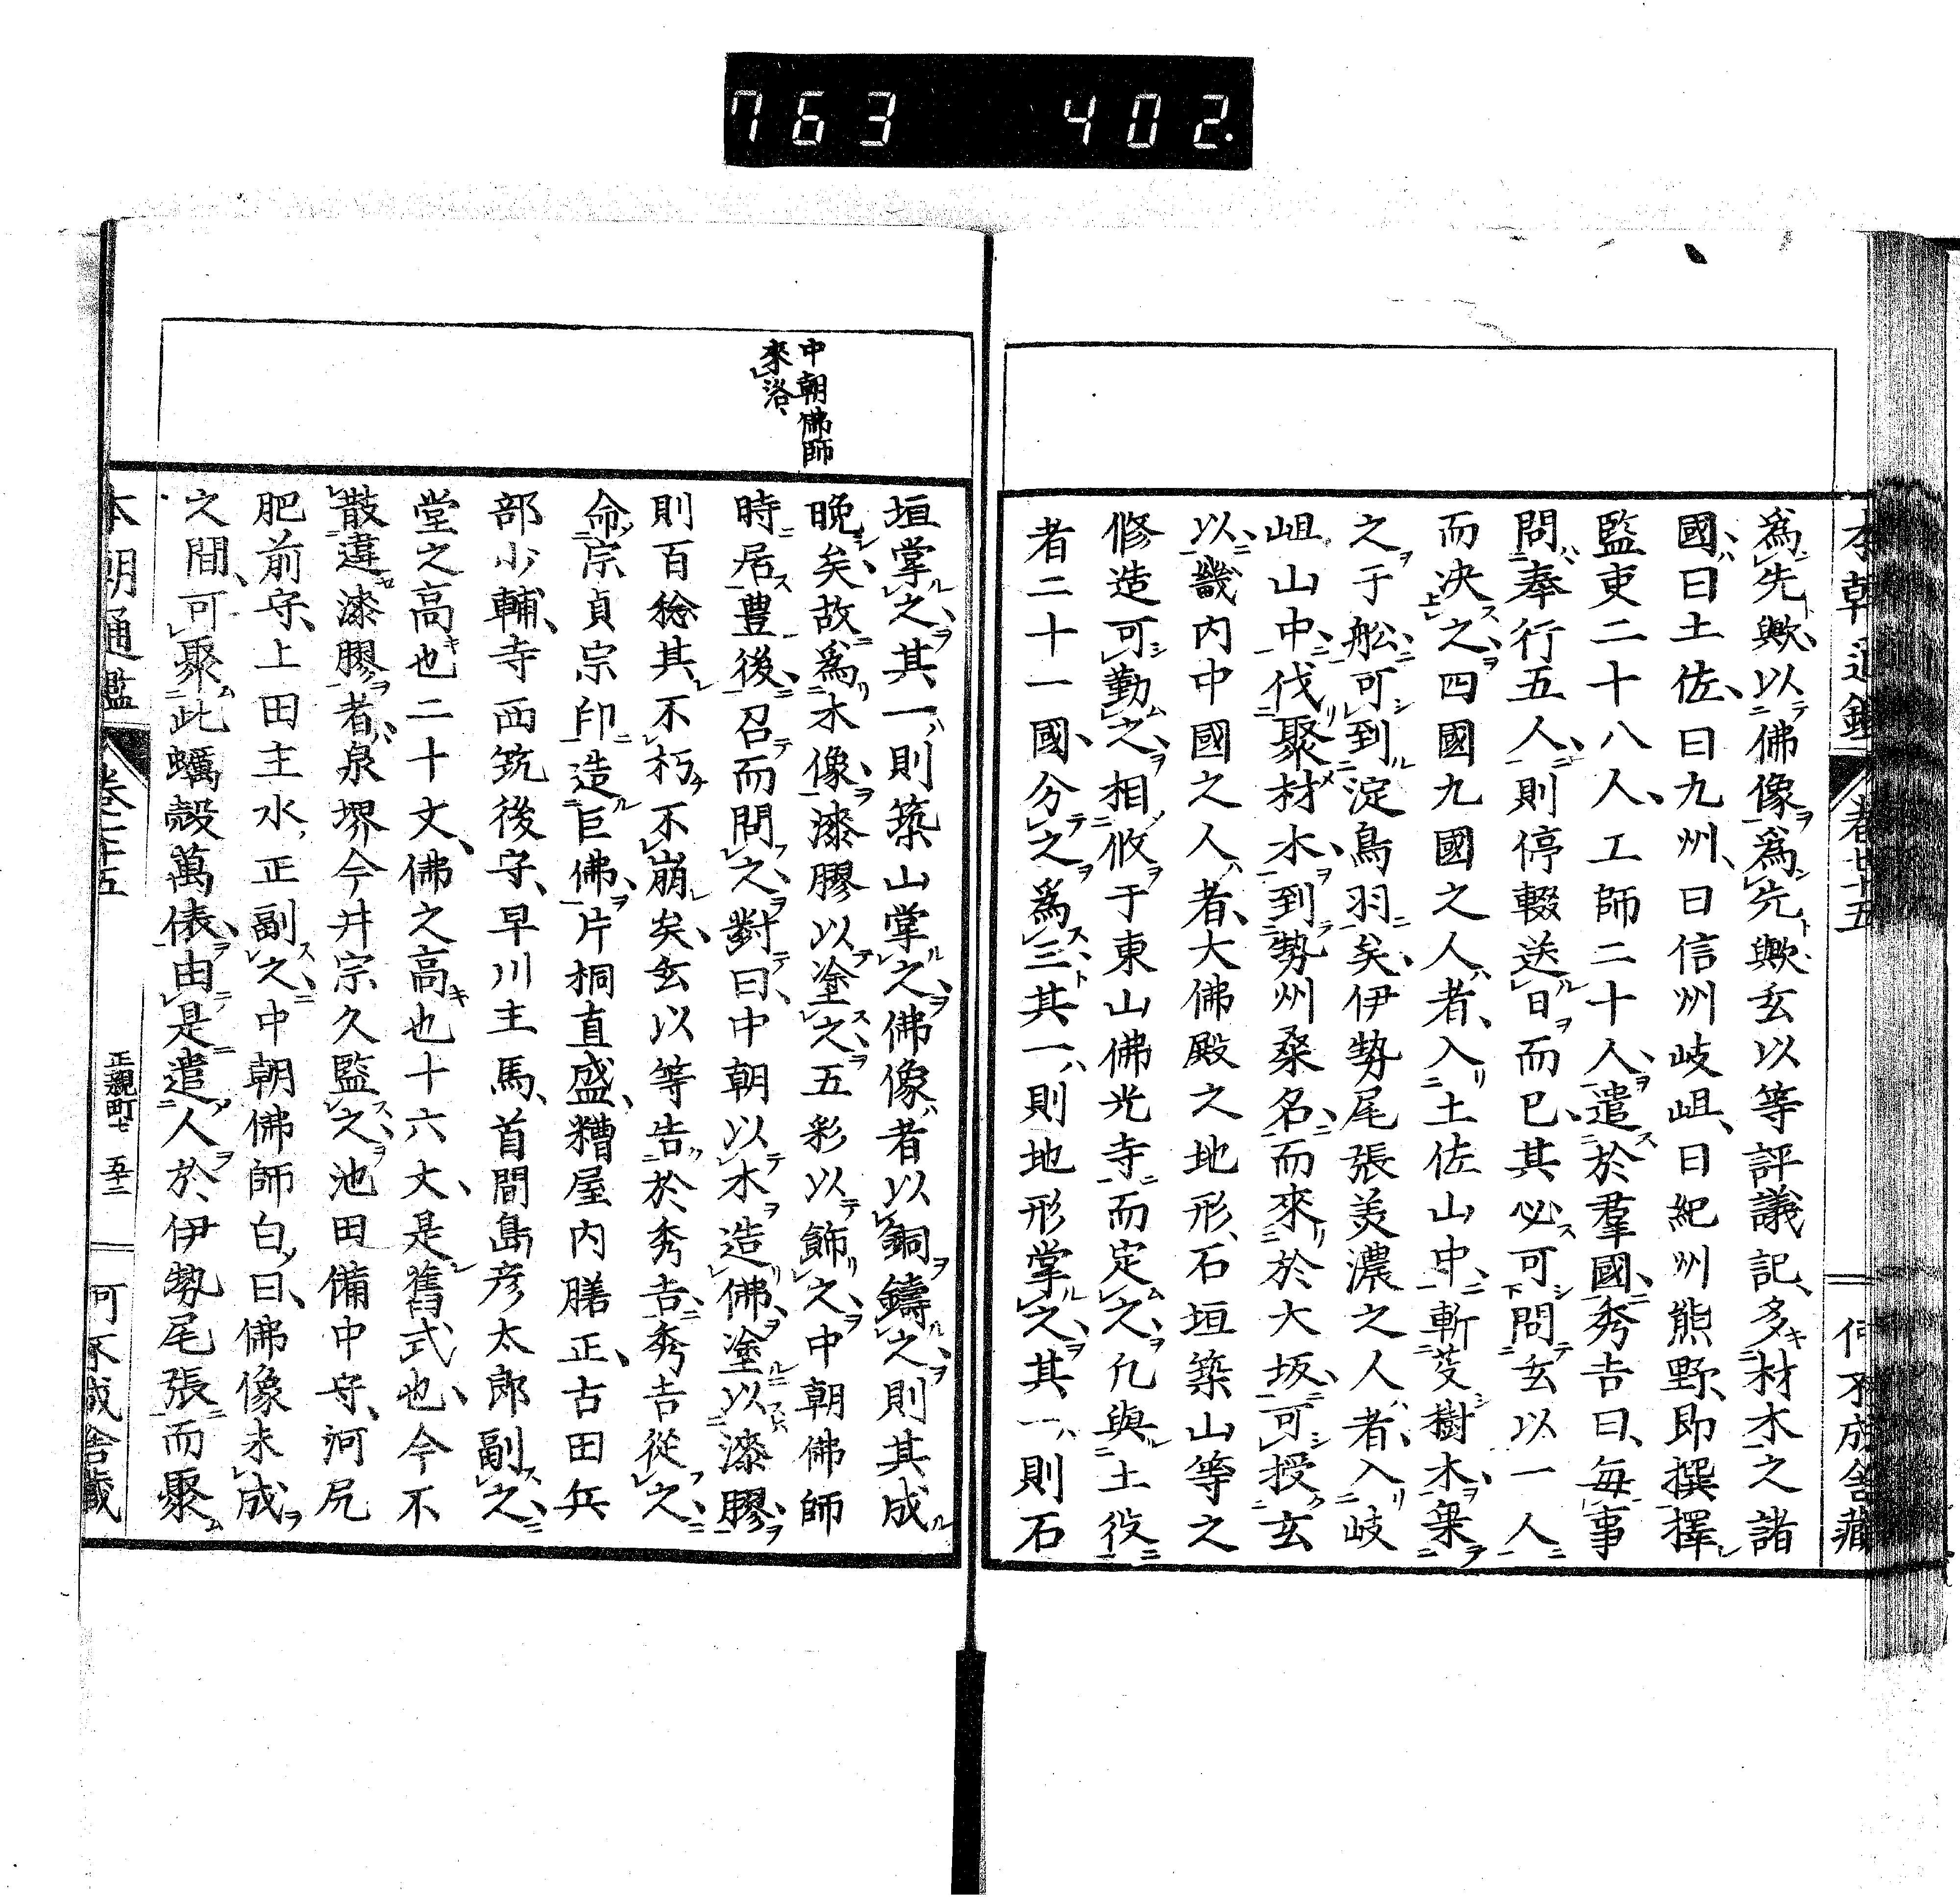 763 402.
本朝通鑑 卷七十五 何不成舎藏
爲先歟以佛像爲先歟玄以等評議記多材木之諸
國曰土佐曰九州曰信州岐岨曰紀州熊野即撰擇
監吏二十八人工師二十人遣於羣國秀吉曰毎事
問奉行五人則停輟送日而已其必可問玄以一人
而決之四國九國之人者入土佐山中斬芟樹木乗
之于舩可到淀鳥羽矣伊勢尾張美濃之人者入岐
岨山中伐聚材木到勢州桑名而來於大坂可授玄
以畿内中國之人者大佛殿之地形石垣築山等之
修造可勤之相攸于東山佛光寺而定之凢與土役
者二十一國分之爲三其一則地形掌之其一則石
中朝佛師
來洛
垣掌之其一則築山掌之佛像者以銅鑄之則其成
晩矣故爲木像漆膠以塗之五彩以飾之中朝佛師
時居豊後召而問之對曰中朝以木造佛塗以漆膠
則百稔其不朽不崩矣玄以等告於秀吉秀吉從之
命宗貞宗印造巨佛片桐直盛糟屋内膳正古田兵
部少輔寺西筑後守早川主馬首間島彦太郎副之
堂之高也二十丈佛之高也十六丈是舊式也今不
散違漆膠者泉堺今井宗久監之池田備中守河尻
肥前守上田主水正副之中朝佛師白曰佛像未成
之間可聚此蠣殻萬俵由是遣人於伊勢尾張而聚
本朝通鑑 卷七十五 正親町七 五十二 何不成舎藏